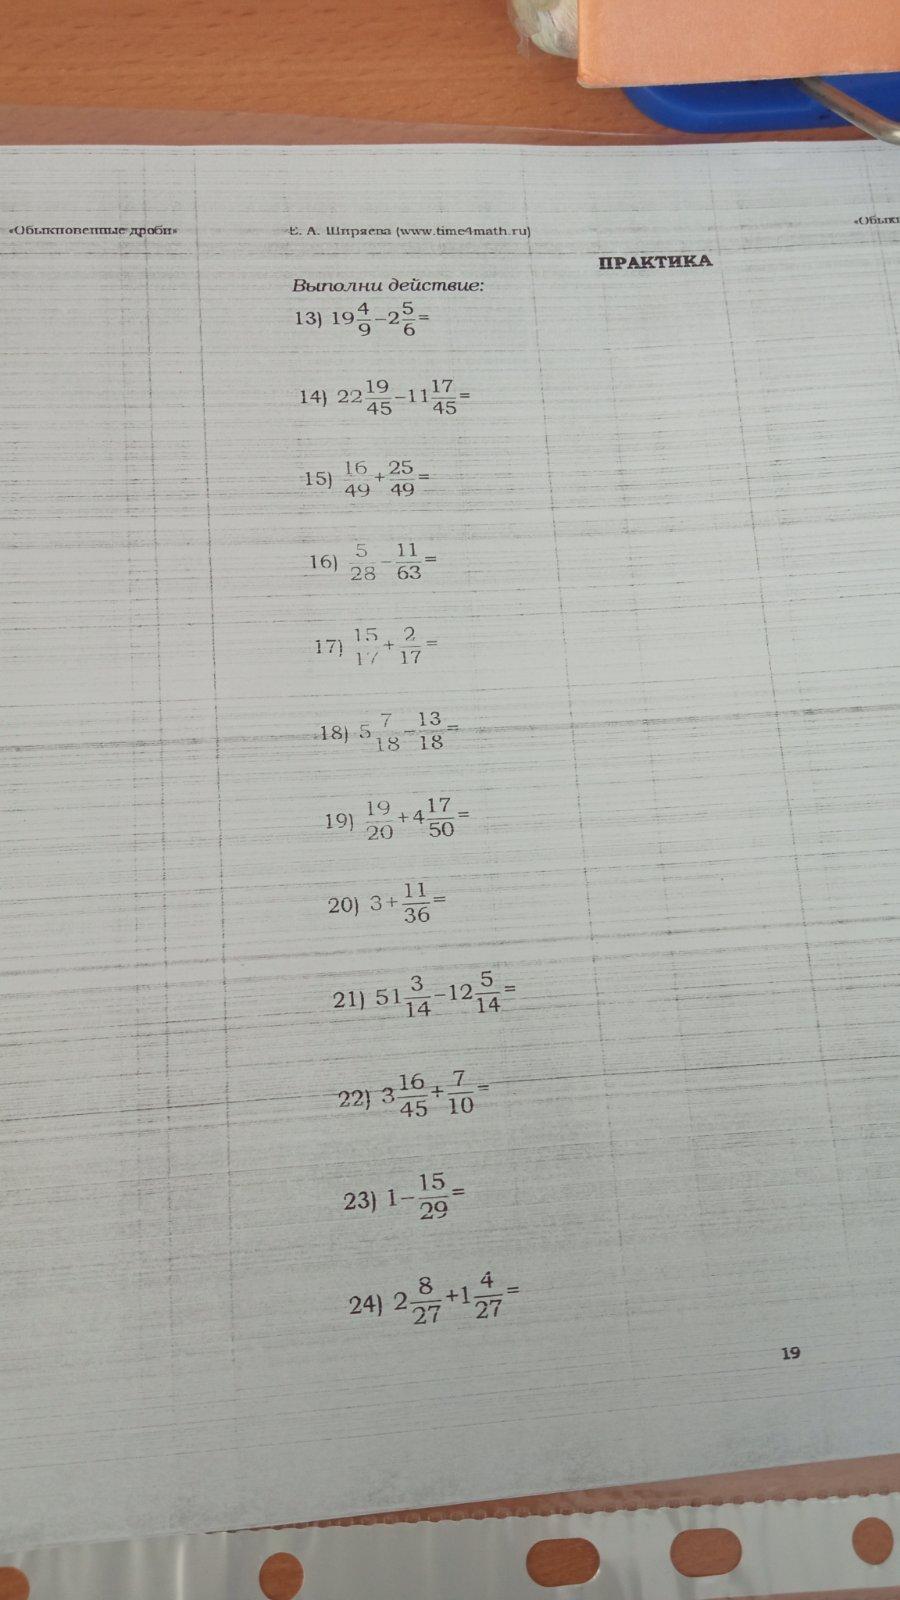 «Обыкновенные дроби»
Е. А. Ширяева (www.time4math.ru)
ПРАКТИКА
Выполни действие:
13) 19 4/9 − 2 5/6 =
14) 22 19/45 − 11 17/45 =
15) 16/49 + 25/49 =
16) 5/28 − 11/63 =
17) 15/17 + 2/17 =
18) 5 7/18 − 13/18 =
19) 19/20 + 4 17/50 =
20) 3 + 11/36 =
21) 51 3/14 − 12 5/14 =
22) 3 16/45 + 7/10 =
23) 1 − 15/29 =
24) 2 8/27 + 1 4/27 =
19